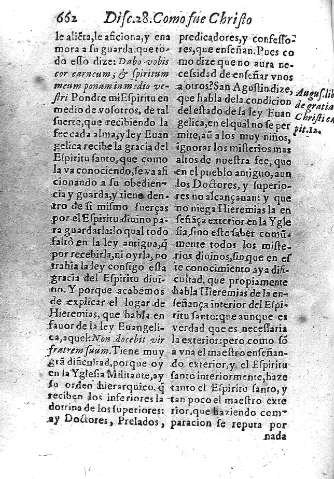 662 Disc.28. Como fue Christo
le aliẽta, le aficiona, y ena
mora a su guarda. que to
do esso dize: Dabo vobis
cor carneum; & spiritum
meum ponam in medio ve-
stri Pondre mi Espiritu en
medio de vosotros, de tal
suerte, que recibiendo la
fee cada alma, y ley Euan
gelica recibe la gracia del
Espiritu santo, que como
la va conociendo, se va afi
cionando a su obedien-
cia y guarda, y tiene den-
tro de si mismo fuerças
por el Espiritu divino pa-
ra guardarla: lo qual todo
faltò en la ley antigua, q̃
por recebirla, ni oyrla, no
trahia la ley consigo essa
gracia del Espiritu diui-
no. Y porque acabemos
de explicar el lugar de
Hieremias, que habla en
fauor de la ley Euangeli-
ca, aquel: Non docebit vir
fratrem suum. Tiene muy
grã dificultad, porque oy
en la Yglesia Militante, ay
su orden hierarquico, q̃
reciben los inferiores la
dotrina de los superiores:
ay Doctores, Prelados,
predicadores, y confesso-
res, que enseñan. Pues co
mo dize que no aura ne-
cessidad de enseñar vnos
a otros? San Agustin dize,
que habla de la condicion
del estado de la ley Euan
gelica, en el qual no se per
mite, aũ a los muy niños,
ignorar los misterios mas
altos de nuestra fee, que
en el pueblo antiguo, aun
los Doctores, y superio-
res no alcançauan: y que
no niega Hieremias la en-
señança exterior en la Ygle
sia, sino este saber comũ-
mente todos los miste-
rios diuinos, sin que en es
te conocimiento aya difi-
cultad, que propiamente
habla Hieremias de la en-
señança interior del Espi-
ritu santo: que aunque es
verdad que es necessaria
la exterior: pero como sõ
a vna el maestro enseñan-
do exterior, y el Espiritu
santo interiormente, haze
tanto el Espiritu santo, y
tan poco el maestro exte
rior, que haziendo com-
paracion se reputa por
nada
August. lib.
de gratia
Christi ca
pit. 12.